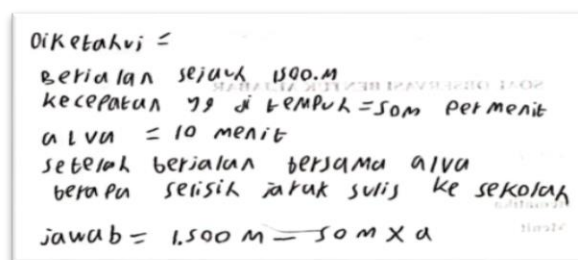 Diketahui =
Berjalan sejauh 1500.M
kecepatan yg di tempuh = 50m per menit
alva = 10 menit
setelah berjalan bersama alva
berapa selisih jarak sulis ke sekolah
jawab = 1.500 M – 50 m x a